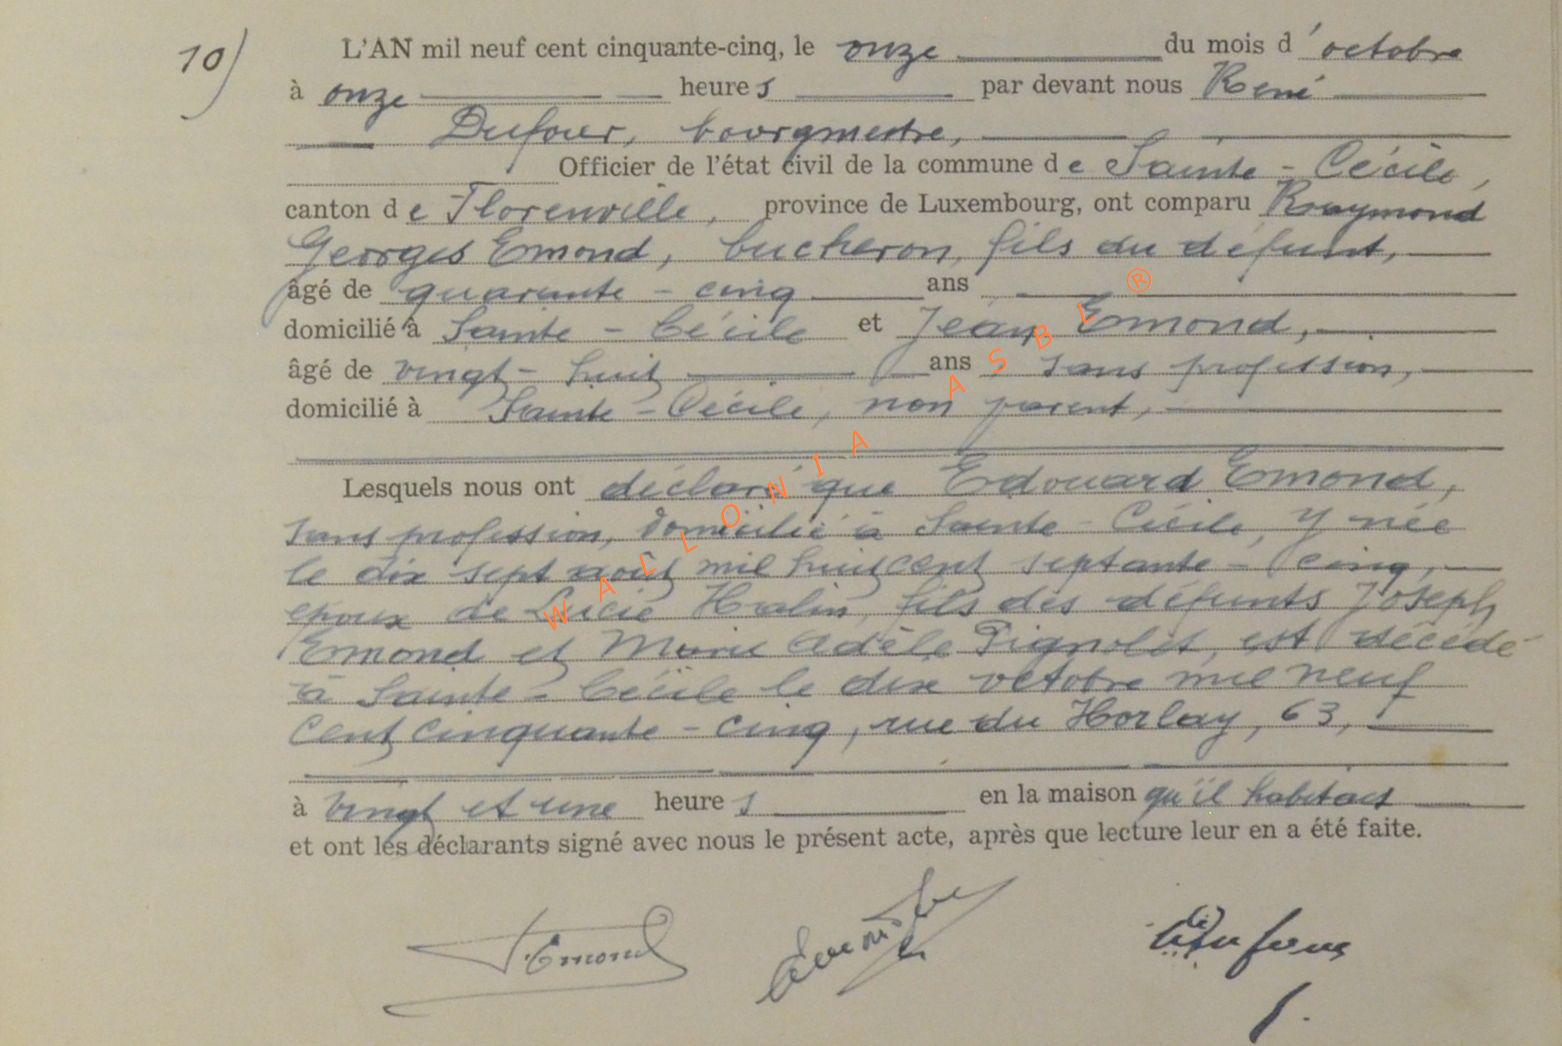 10) L'AN mil neuf cent cinquante-cinq, le onze du mois d'octobre
à onze heures par devant nous René
Dufour, bourgmestre,
Officier de l'état civil de la commune de Sainte-Cécile,
canton de Florenville, province de Luxembourg, ont comparu Raymond
Georges Emond, bucheron, fils du défunt,
âgé de quarante-cinq ans
domicilié à Sainte-Cécile et Jean Emond,
âgé de vingt-huit ans sans profession,
domicilié à Sainte-Cécile, non parent,
Lesquels nous ont déclaré que Edouard Emond,
sans profession, domicilié à Sainte-Cécile, y née
le dix sept août mil huit cent septante-cinq,
époux de Lucie Halin, fils des défunts Joseph
Emond et Marie Adèle Pignolet, est décédé
à Sainte-Cécile le dix octobre mil neuf
cent cinquante-cinq, rue du Horlay, 63,
à vingt et une heures en la maison qu'il habitait
et ont les déclarants signé avec nous le présent acte, après que lecture leur en a été faite.
J. Emond Dufour
WALLONIA ASBL ®